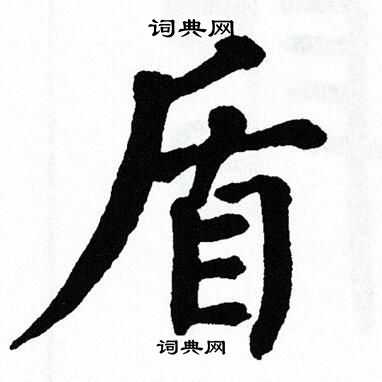 词典网
盾
词典网